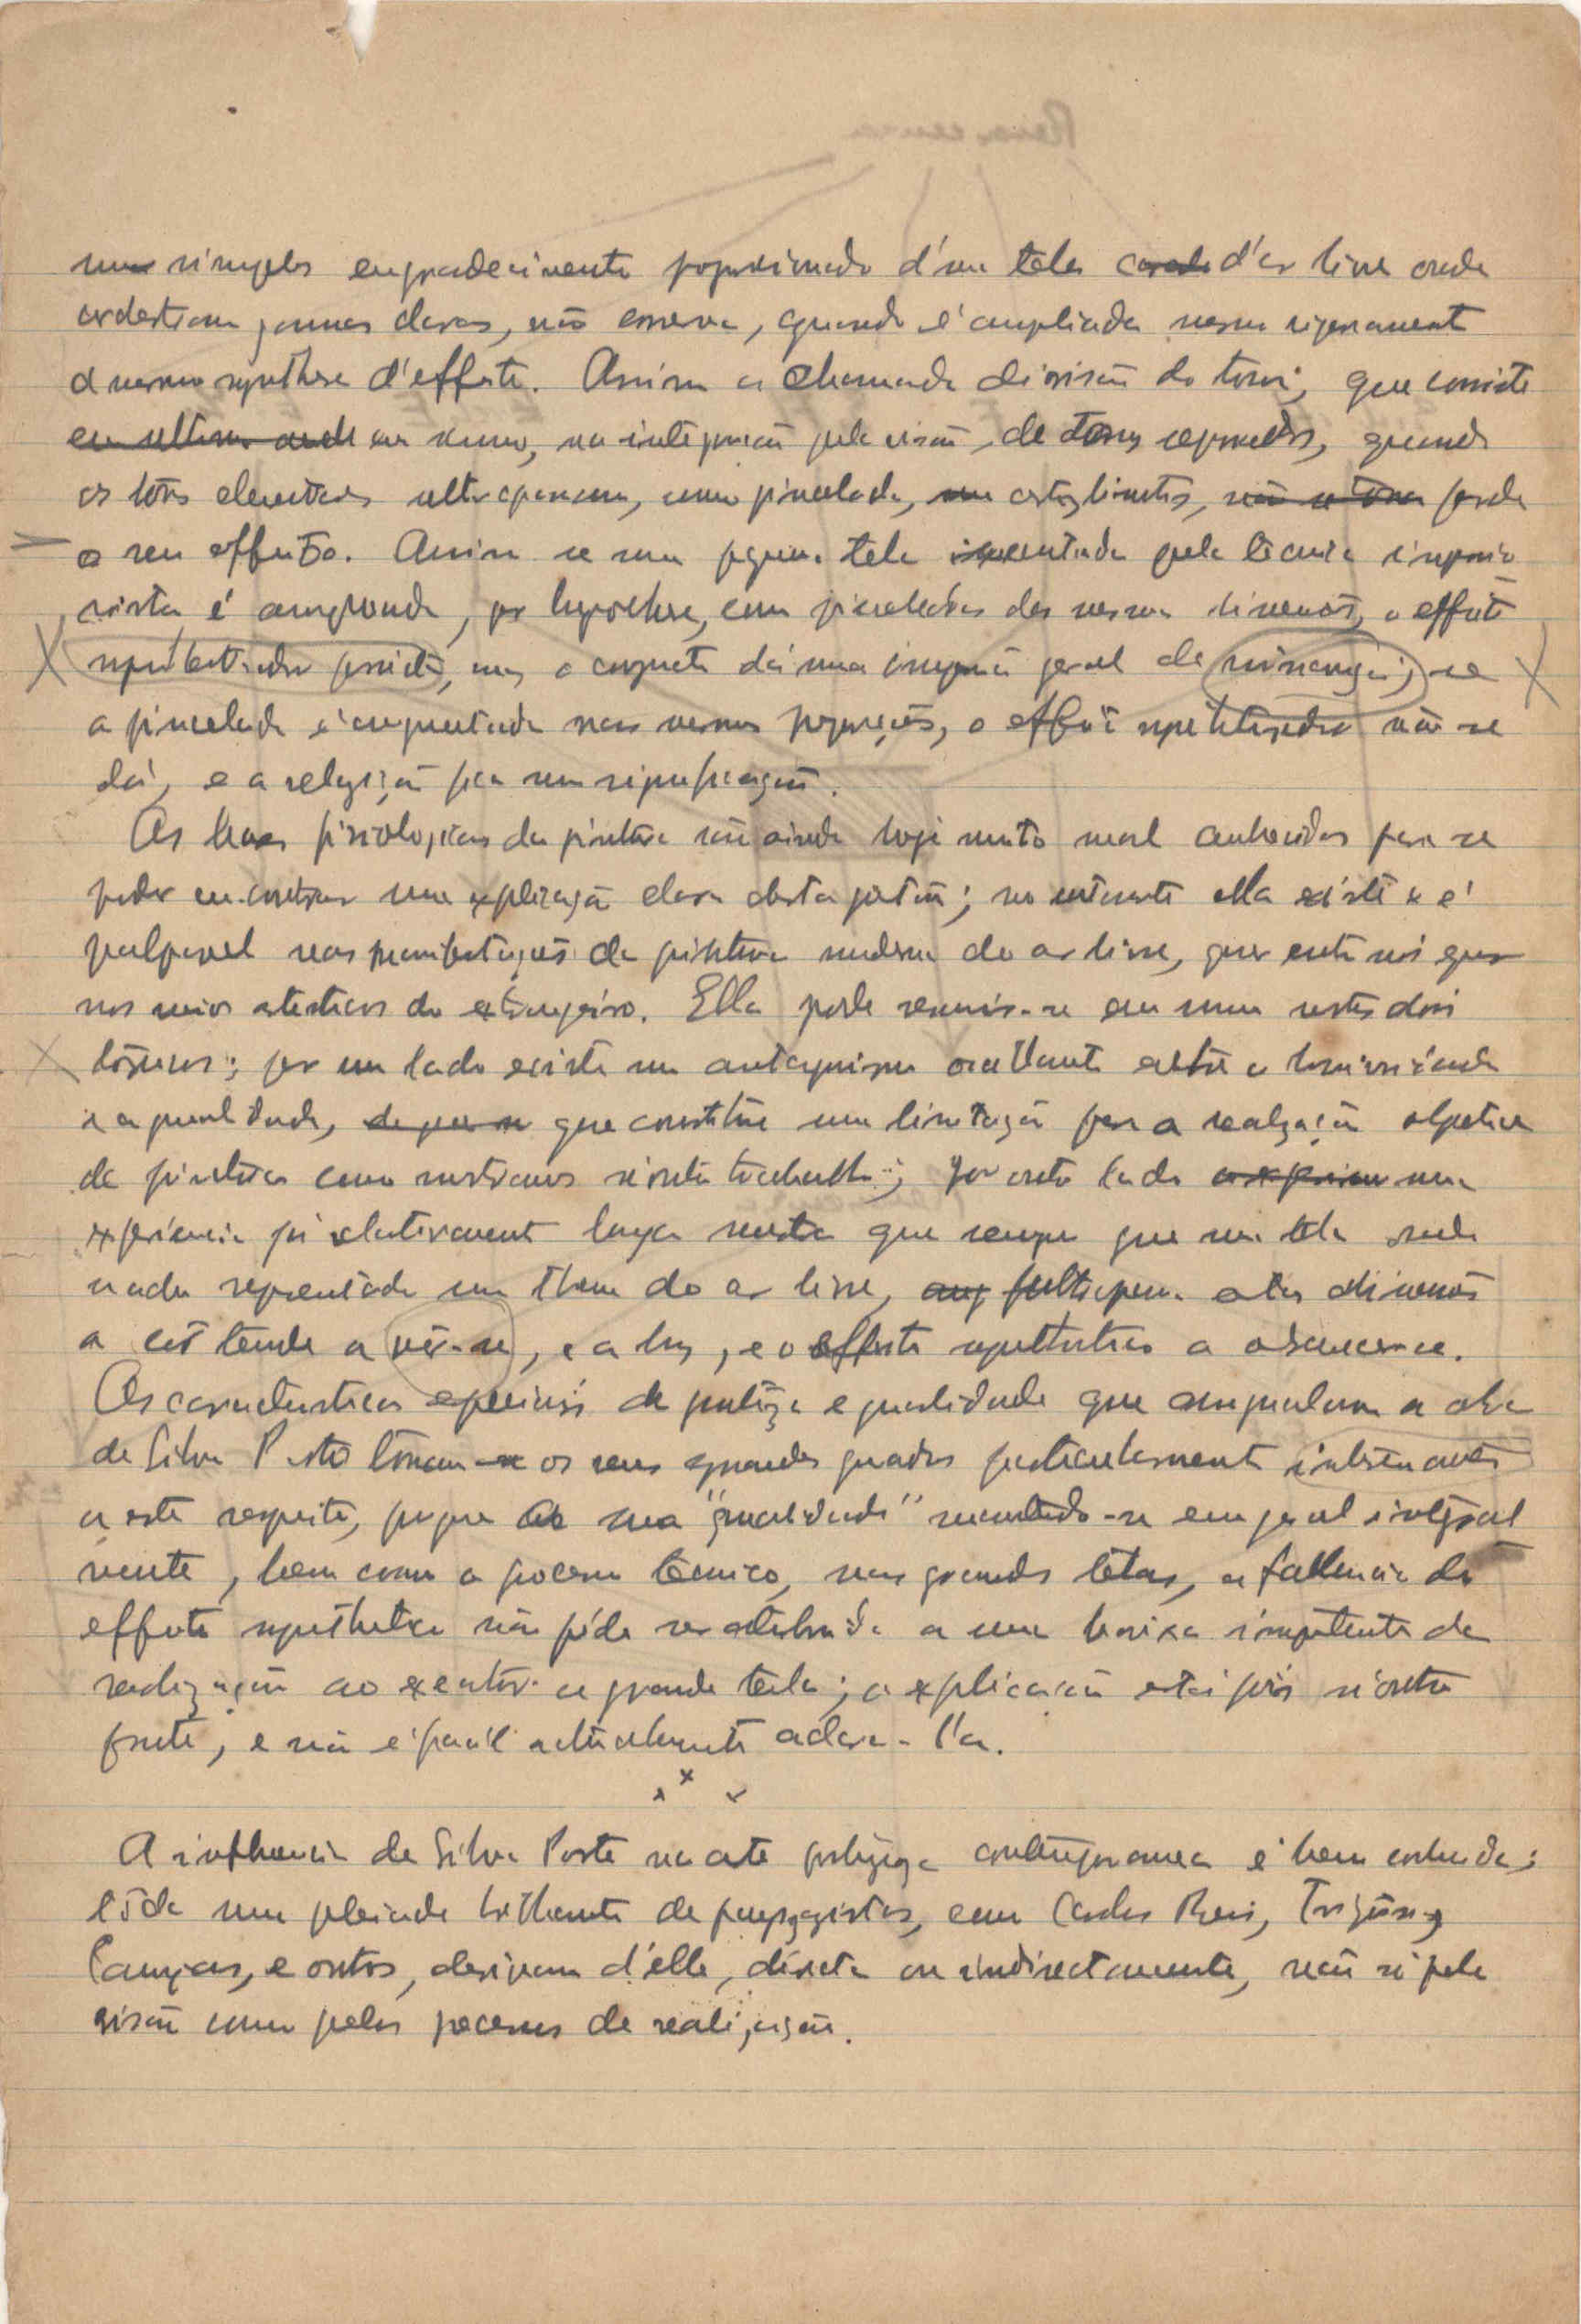 simples engrandecimento proporcionado d'uma tela d'ar livre onde
gammas claras, não conserva, quando é ampliada mesmo rigorosamente
a mesma synthese d'effeito. Assim a chamada divisão do tom, que consiste
em summa, na integração pela visão, de tons separados, quando
os tons elementares ultrapassam, como pincelada, certos limites, perde
o seu effeito. Assim se uma pequena tela executada pela técnica impressio
nista é augmentada, por hypothese, com pinceladas das mesmas dimensões, o effeito
, mas o conjuncto dá uma impressão geral de ; se
a pincelada é augmentada nas mesmas proporções, o effeito synthetisador não se
dá, e a relação fica sem significação.
As bases physiologicas da pintura são ainda hoje muito mal conhecidas para se
poder encontrar uma explicação clara desta questão; no entanto ella existe e é
palpavel nas manifestações da pintura moderna do ar livre, quer entre nós quer
nos meios artisticos do extrangeiro. Ella pode resumir-se em summa nestes dois
termos: por um lado existe um antagonismo constante entre a luminosidade
e a qualidade, que constitue uma limitação para a realização objectiva
da pintura como mostramos n'outro trabalho; por outro lado uma
experiencia já relativamente larga mostra que sempre que uma tela onde
é representado um thema do ar livre, ultrapassa certas dimensões
a côr tende a , e a luz, e o effeito synthetico a obscurecer-se.
As caracteristicas especiaes de justeza e qualidade que assignalam a obra
de Silva Porto tornam os seus grandes quadros particularmente interessantes
a este respeito, porque a sua "qualidade" mantendo-se em geral integral
mente, bem como o processo tecnico, nas grandes telas, a fallencia do
effeito synthetico não póde ser attribuida a uma baixa impotente da
realização ao executar a grande tela; a explicação está pois n'outra
fonte, e não é facil actualmente aclara-l'a.
x x x
A influencia de Silva Porto na arte portugueza contemporanea é bem conhecida;
tôda uma pleiade brilhante de paysagistas, como Carlos Reis, Trigoso,
Campas, e outros, derivam d'elle, directa ou indirectamente, não só pela
visão como pelos processos de realização.